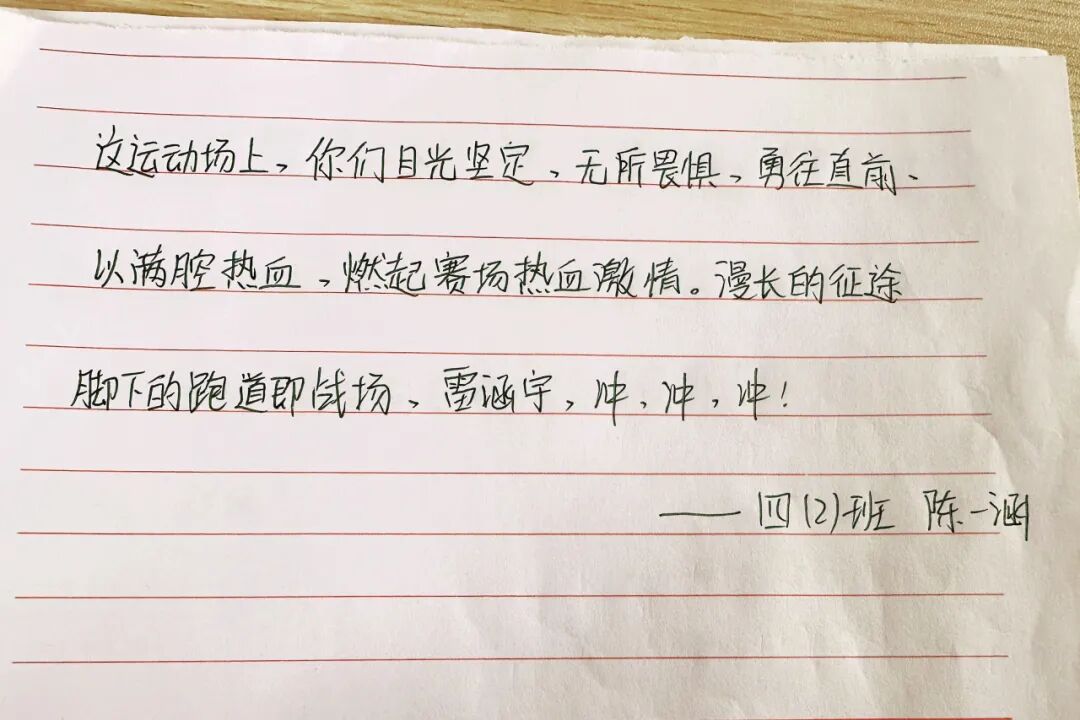 这运动场上,你们目光坚定、无所畏惧、勇往直前、
以满腔热血,燃起赛场热血激情。漫长的征途
脚下的跑道即战场、雷涵宇,冲、冲,冲!
——四(2)班 陈一涵